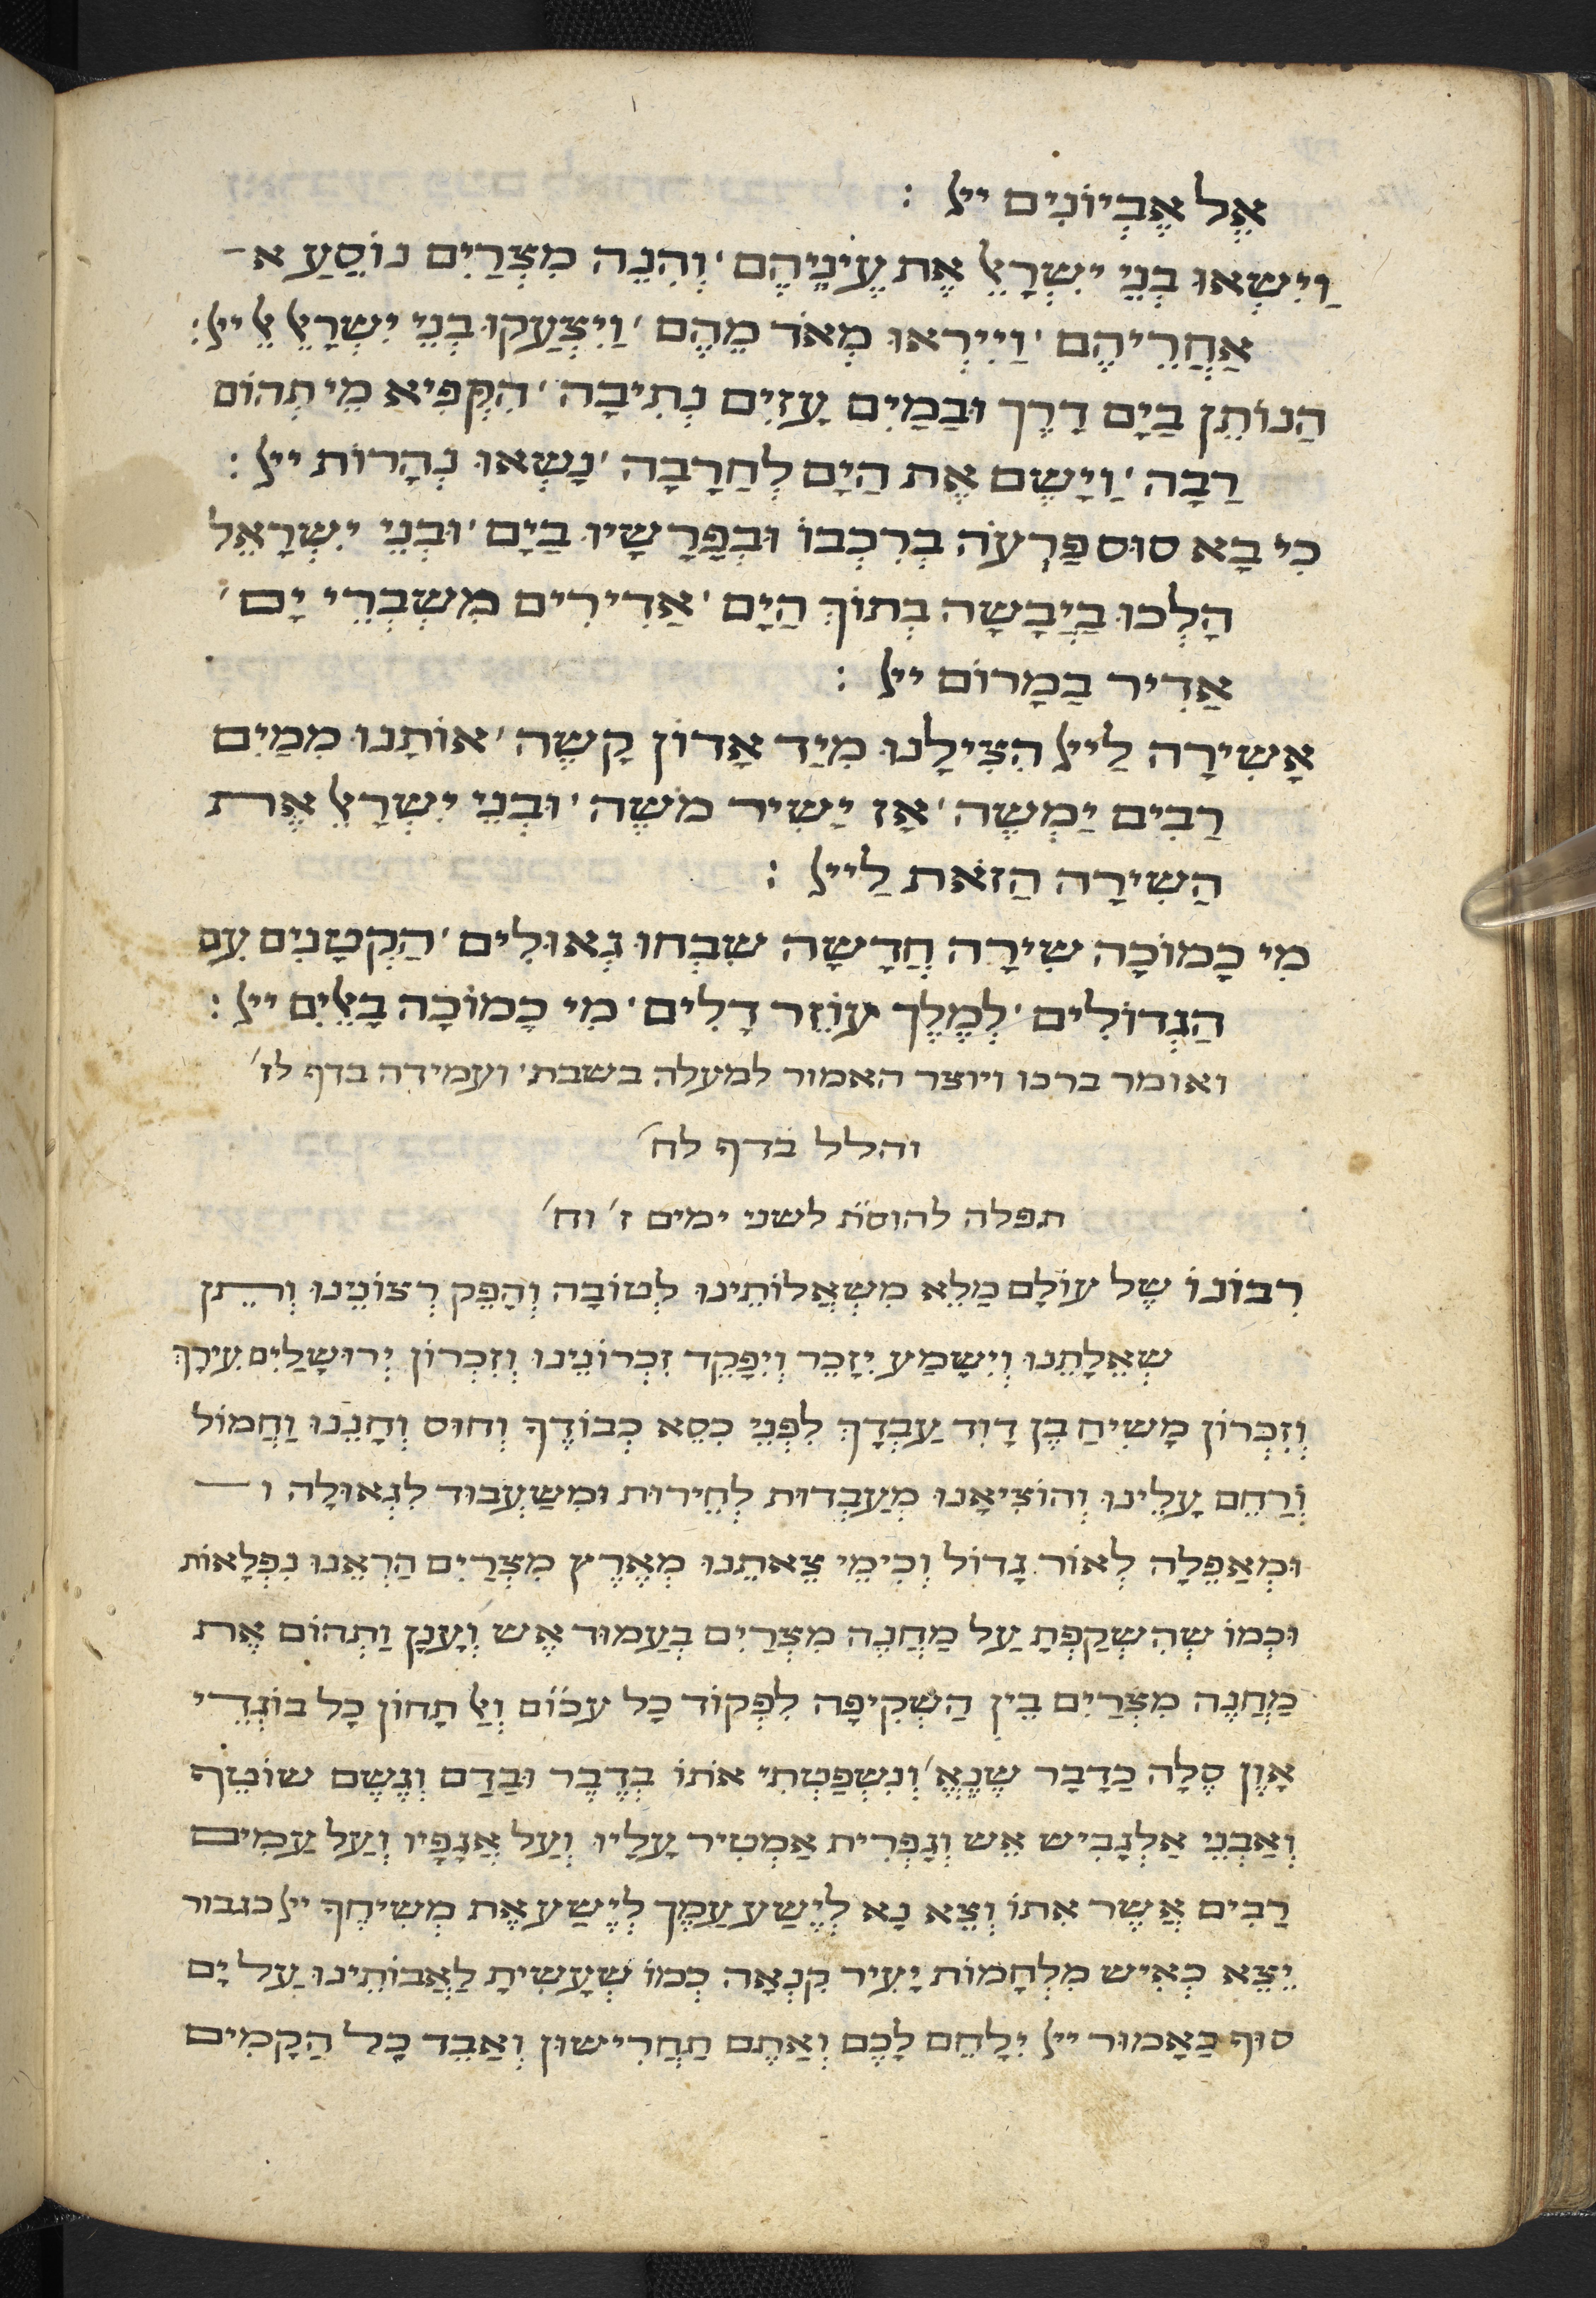 אֶל אֶבְיוֹנִים ייﭏ :
וַיִשְׂאוּ בְנֵי יִשְׂרָﭏֵ אֶת עֵינֵיהֶם׳ וְהִנֵה מִצְרַיִם נוֹסֵעַ א
אַחֲרֵיהֶם׳ וַיִירְאוּ מְאֹד מֵהֶם׳ וַיִצְעֲקוּ בְנֵי יִשְׂרָﭏֵ ﭏֵ ייﭏ :
הַנוֹתֵן בַיָם דֶרֶך וּבַמַיִם עָזִים נְתִיבָה׳ הִקְפִיא מֵי תְהוֹם
רַבָה׳ וַיָשֶם אֶת הַיָם לְחָרָבָה׳ נָשְׂאוּ נְהָרוֹת ייﭏ :
כִי בָא סוּס פַרְעֹה בְרִכְבוֹ וּבְפָרָשָׁיו בַיָם׳ וּבְנֵי יִשְׂרָאֵל
הָלְכוּ בַיַבָשָׁה בְתוֹךְ הַיָם׳ אַדִירִים מִשְׁבְרֵי יָם׳
אַדִיר בַמָרוֹם ייﭏ :
אָשִׁירָה לַייﭏ הִצִילָנוּ מִיַד אָדוֹן קָשֶׁה׳ אוֹתָנוּ מִמַיִם
רַבִים יַמְשֶׁה׳ אָז יָשִׁיר מֹשֶׁה׳ וּבְנֵי יִשְׂרָﭏֵ אֶת
הַשִׁירָה הַזֹאת לַייﭏ :
מִי כָמוֹכָה שִׁירָה חֲדָשָׁה שִׁבְחוּ גְאוּלִים׳ הַקְטָנִים עִם
הַגְדוֹלִים׳ לְמֶלֶך עוֹזֵר דָלִים׳ מִי כָמוֹכָה בָﭏֵים ייﭏ :
ואומר ברכו ויוצר האמור למעלה בשבת׳ ועמידה בדף לז׳
והלל בדף לח׳
תפלה להוס״ת לשני ימים ז׳ וח׳
רִבוֹנוֹ שֶׁל עוֹלָם מַלֵא מִשְׁאֲלוֹתֵינוּ לְטוֹבָה וְהָפֵק רְצוֹנֵינוּ וְתֵן
שְׁאֵלָתֵנוּ וְיִשָׁמַע יִזָכֵר וְיִפָקֵד זִכְרוֹנֵינוּ וְזִכְרוֹן יְרוּשָׁלַיִם עִירָךְ
וְזִכְרוֹן מָשִׁיחַ בֶן דָוִד עַבְדָךְ לִפְנֵי כִסֵא כְבוֹדֶךָ וְחוּס וְחָנֵנוּ וַחֲמוֹל
וְרַחֵם עָלֵינוּ וְהוֹצִיאֵנוּ מֵעַבְדוּת לְחֵירוּת וּמִשַׁעְבוּד לִגְאוּלָה ו
וּמֵאַפֵלָה לְאוֹר גָדוֹל וְכִימֵי צֵאתֵנוּ מֵאֶרֶץ מִצְרַיִם הַרְאֵנוּ נִפְלָאוֹת
וּכְמוֹ שֶׁהִשְׁקַפְתָ עַל מַחֲנֶה מִצְרַיִם בְעַמוּד אֵשׁ וְעָנָן וַתְהוֹם אֶת
מַחֲנֶה מִצְרַיִם בֵין הַשְׁקִיפָה לִפְקוֹד כָל עכו״ם וְﭏַ תָחוֹן כָל בוֹגְדֵי
אָוֶן סֶלָה כַדָבָר שֶׁנֶאֱ׳ וְנִשְׁפַטְתִי אִתוֹ בְדֶבֶר וּבְדָם וְגֶשֶׁם שׁוֹטֵף
וְאַבְנֵי אֶלְגָבִישׁ אֵשׁ וְגָפְרִית אַמְטִיר עָלָיו וְעַל אֲגַפָיו וְעַל עַמִים
רַבִים אֲשֶׁר אִתוֹ וְצֵא נָא לְיֶשַׁע עַמֶךָ לְיֶשַׁע אֶת מְשִׁיחֶךָ ייﭏ כגבור
יֵצֵא כְאִישׁ מִלְחָמוֹת יָעִיר קִנְאָה כְמוֹ שֶׁעָשִׂיתָ לַאֲבוֹתֵינוּ עַל יַם
סוּף כָאָמוּר ייﭏ יִלָחֵם לָכֶם וְאַתֶם תַחֲרִישׁוּן וְאַבֵד כָל הַקָמִים